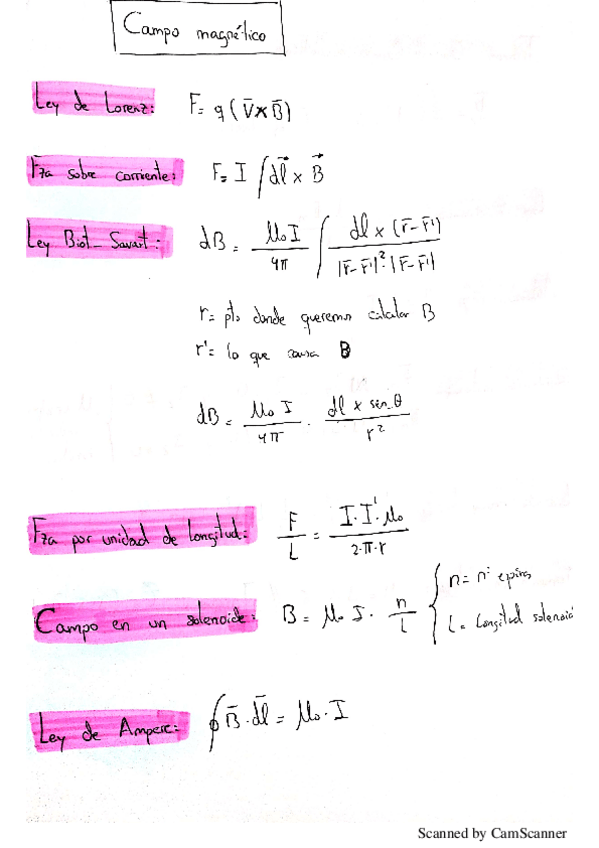 Campo magnético
Ley de Lorenz: F= q (V̄ × B̄)
Fza sobre corriente: F= I ∫ dl⃗ × B⃗
Ley Biot_Savart: dB = μ₀ I / 4π ∫ dl × (r̄-r̄') / |r̄-r̄'|²·|r̄-r̄'|
r= pto donde queremos calcular B
r'= lo que causa B
dB = μ₀ I / 4π · dl × sin θ / r²
Fza por unidad de longitud: F / L = I·I'·μ₀ / 2·π·r
Campo en un solenoide: B = μ₀ I · n / L { n= nº epiras
L= longitud solenoid
Ley de Ampere: ∮ B̄·dl̄ = μ₀·I
Scanned by CamScanner